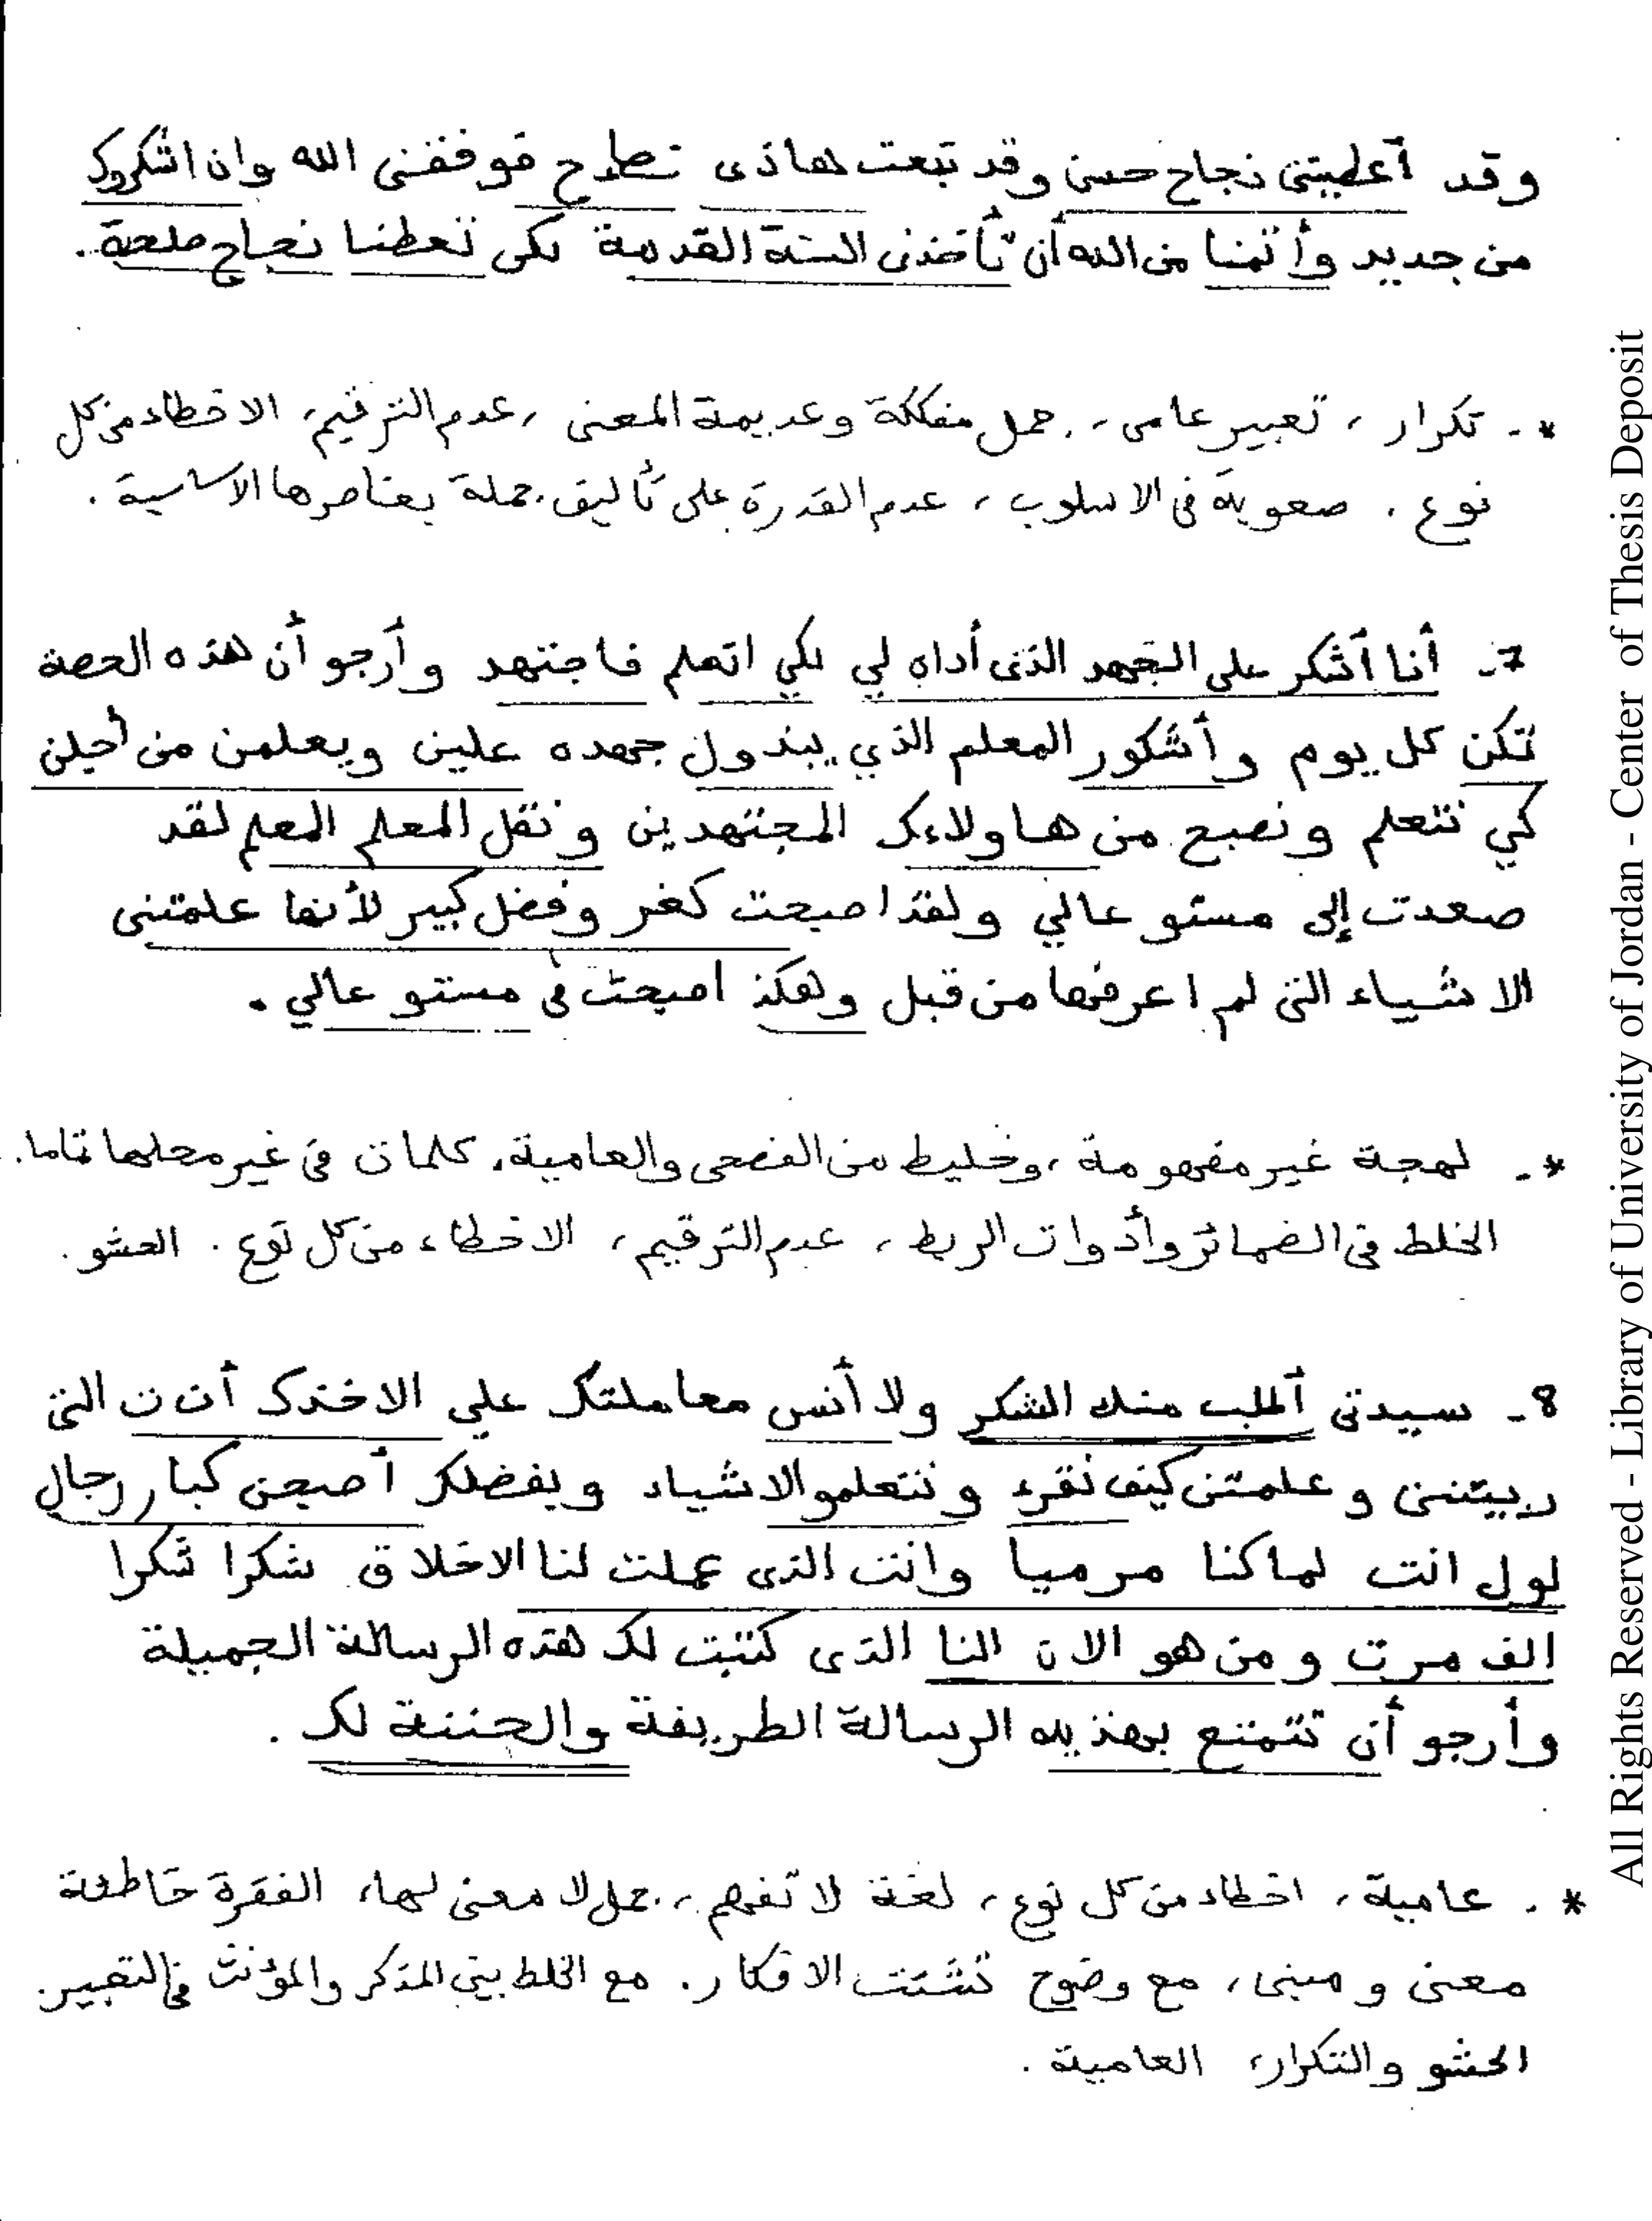 وقد أعطيتني نجاح حسن وقد تبعت هاذى فوففني الله وان اشكروك
من جديد وأتمنا من الله أن تأخذنى الستة القدمة لكي تعطنا نجاح ملحة.
*- تكرار، تعبير عامى، جمل مفككة وعديمة المعنى، عدم الترقيم، الاخطاء من كل
نوع. صعوبة في الاسلوب، عدم القدرة على تأليف جملة بعناصرها الاساسية.
7- أنا أشكر على الجهد الذى أداه لي لكي اتعلم فاجتهد وأرجو أن هذه الحصة
تكن كل يوم وأشكور المعلم الذي يبذول جهده علين ويعلمن من أجلن
كي نتعلم ونصبح من هاولاءك المجتهدين ونقل المعلم المعلم لقد
صعدت إلى مستو عالي ولقد اصبحت كغر وفضل كبير لأنها علمتنى
الاشياء التى لم اعرفها من قبل وهكذ اصبحت فى مستو عالي.
*- لهجة غير مفهومة، وخليط من الفصحى والعامية. كلمات في غير محلها تماما.
الخلط فى الضمائر وأدوات الربط، عدم الترقيم، الاخطاء من كل نوع. الحشو.
8- سيدتى أطلب منك الشكر ولا أنس معاملتك علي الاخذك أن ت التى
ربيتنن وعلمتن كيف نقرء ونتعلمو الاشياء وبفضلك أصبحن كبار رجال
لول انت لما كنا مرميا وانت الذى عملت لنا الاخلاق شكرا شكرا
الف مرت ومن هو الان النا الذى كتبت لك هذه الرسالة الجميلة
وأرجو أن تتمتع بهذيه الرسالة الطريفة والحننة لك.
*- عامية، اخطاء من كل نوع، لغة لا تفهم، جمل لا معنى لها، الفقرة خاطئة
معنى ومبنى، مع وضوح تشتت الافكار. مع الخلط بين المذكر والمؤنث في التعبير.
الحشو والتكرار، العامية.
All Rights Reserved - Library of University of Jordan - Center of Thesis Deposit